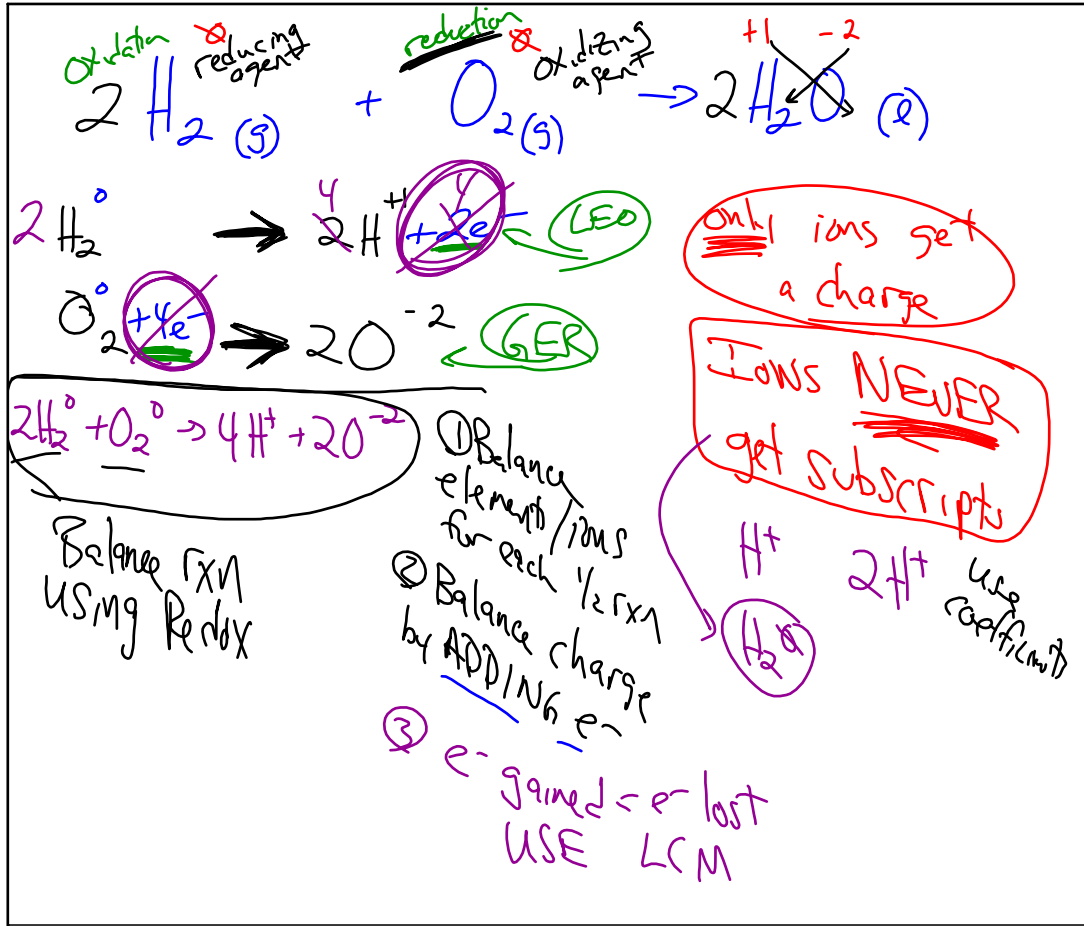 oxidation reducing agent reduction oxidizing agent +1 -2
2 H₂ (g) + O₂ (g) → 2H₂O (l)
2 H₂⁰ → 4 2H⁺¹ 4 +2e⁻ LEO
O₂⁰ +4e⁻ → 2O⁻² GER
2H₂⁰ + O₂⁰ → 4H⁺ + 2O⁻²
Balance rxn
using Redox
① Balance
elements/ions
for each ½ rxn
② Balance charge
by ADDING e⁻
③ e⁻ gained = e⁻ lost
USE LCM
only ions get
a charge
Ions NEVER
get subscripts
H⁺ 2H⁺ use
coefficients
H₂⁰